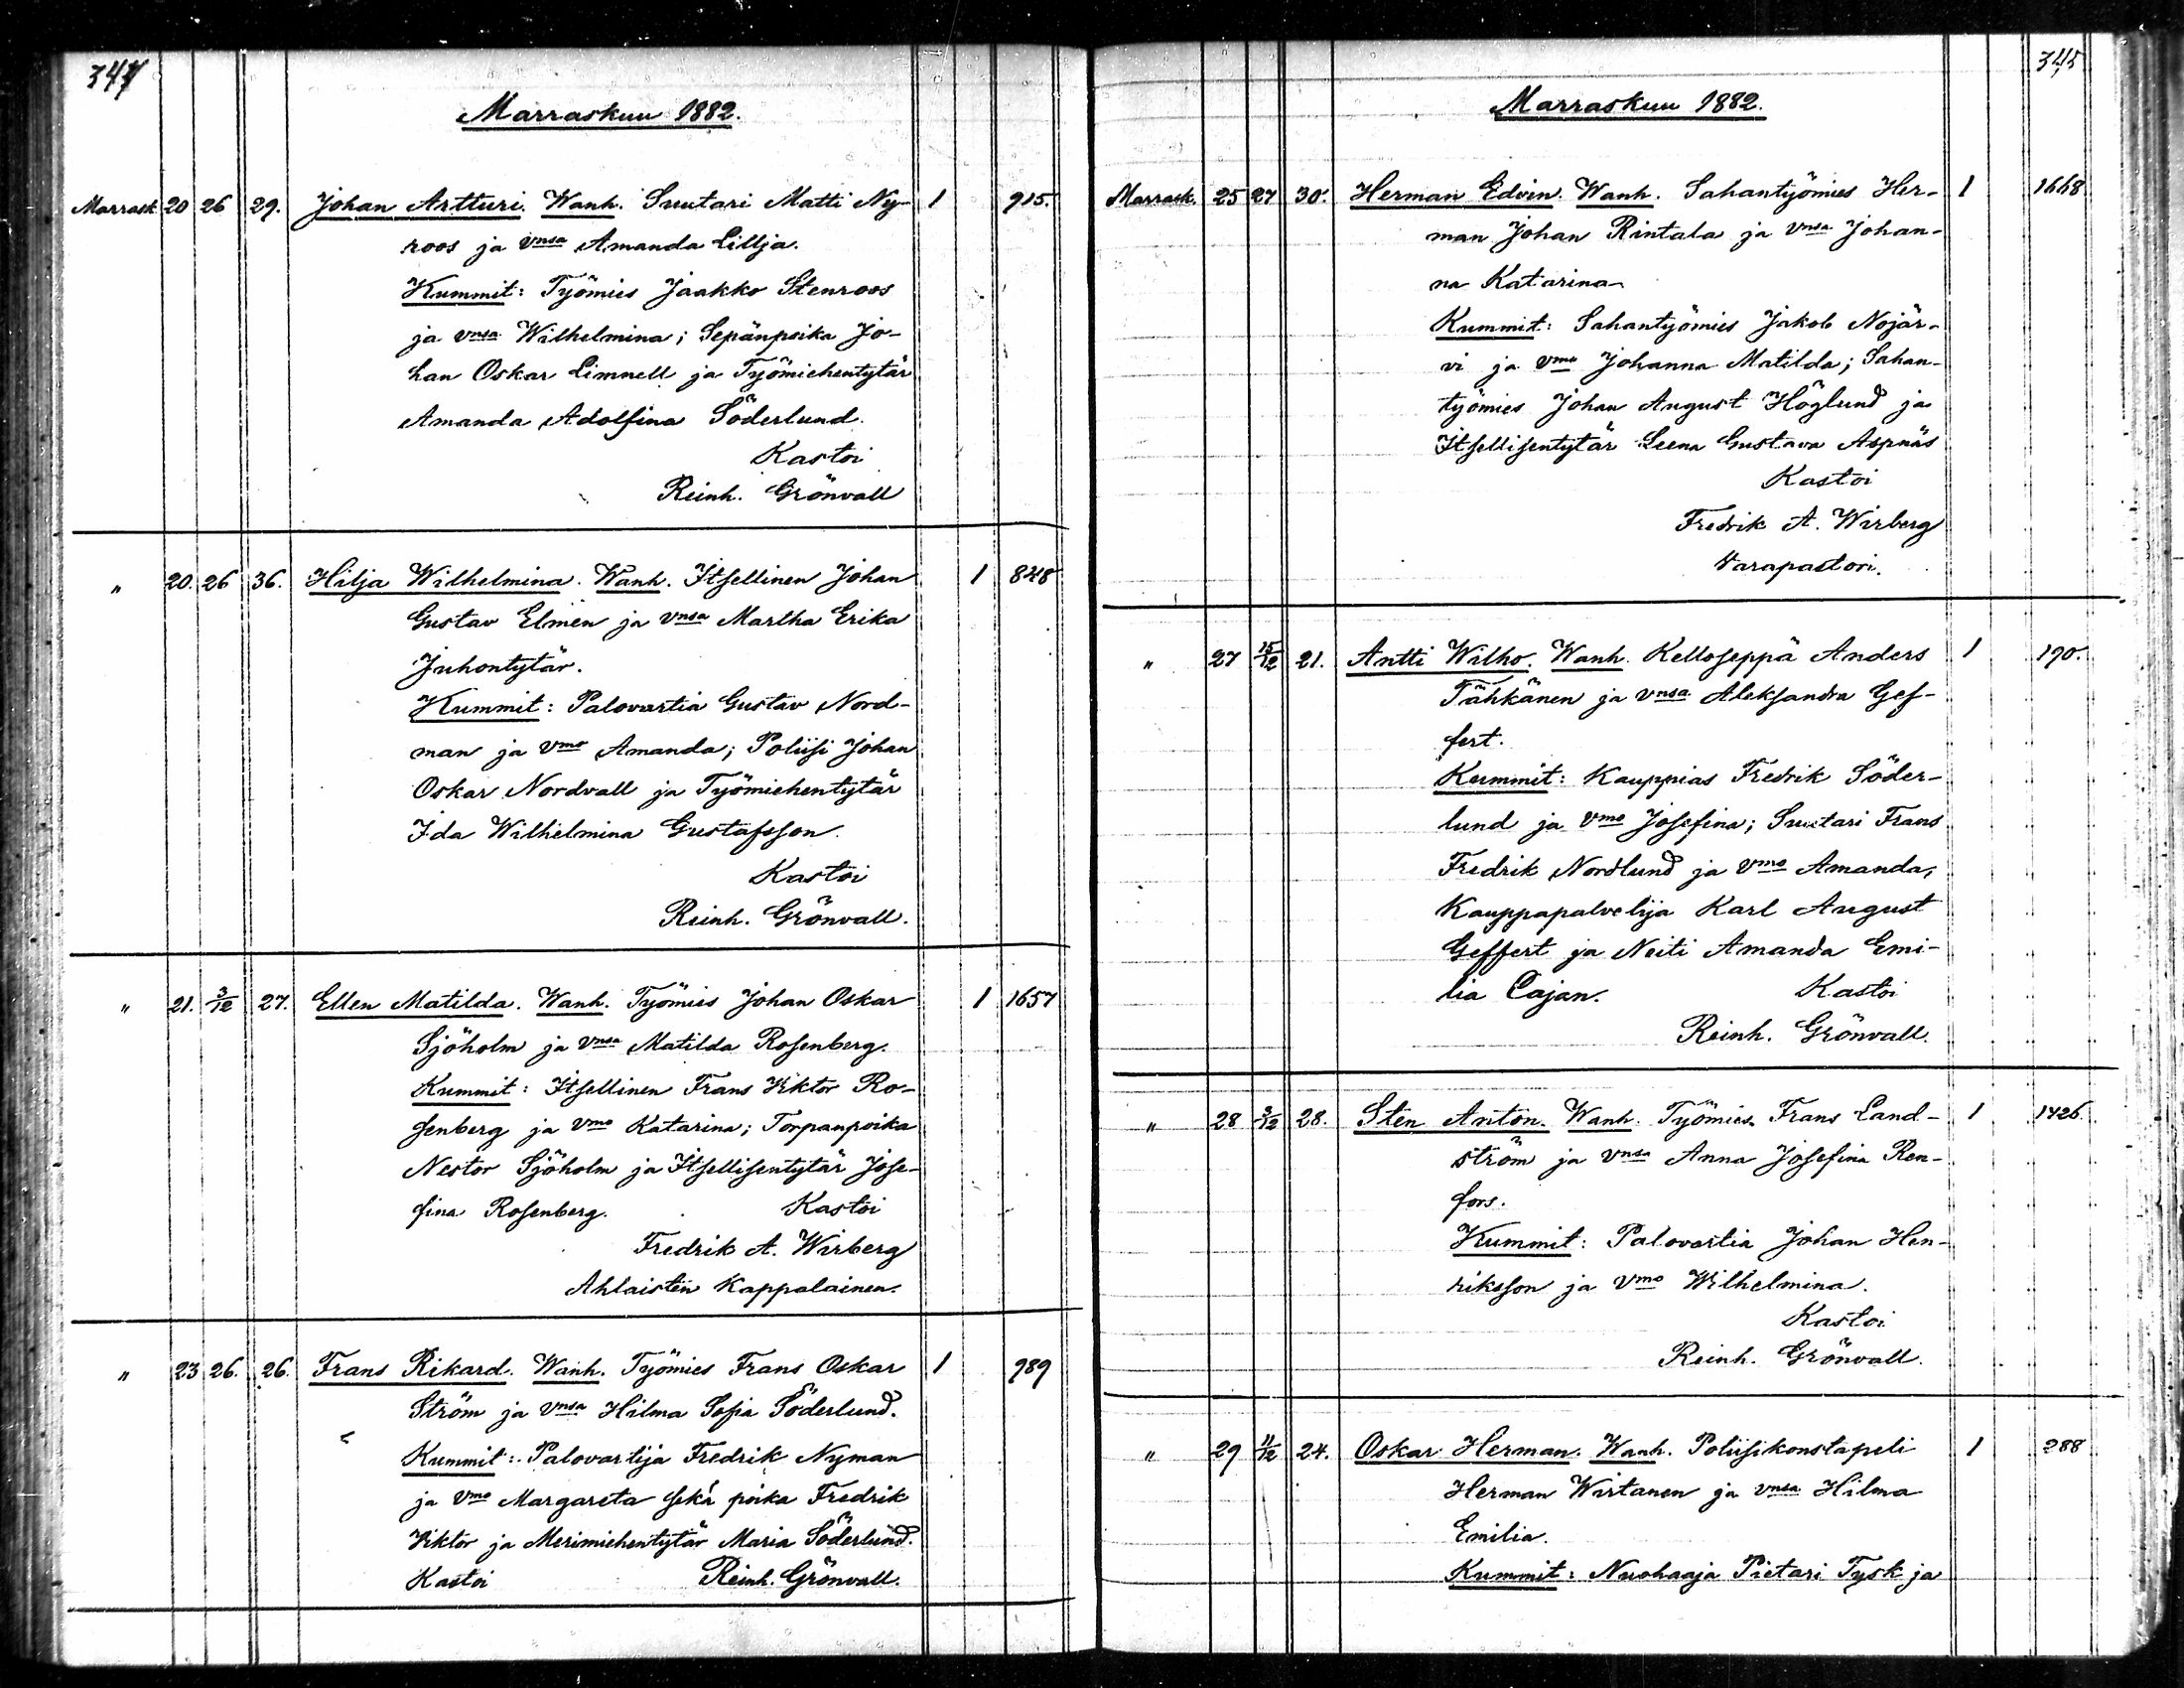 344
Marraskuu 1882.
Marrask. 20 26 29. Johan Artturi. Wanh. Suutari Matti Ny- 1 915.
roos ja vnsa Amanda Lillja.
Kummit: Työmies Jaakko Stenroos
ja vnsa Wilhelmina; Sepänpoika Jo-
han Oskar Limnell ja Työmiehentytär
Amanda Adolfina Söderlund.
Kastoi
Reinh. Grönvall
" 20. 26 36. Hilja Wilhelmina. Wanh. Itsellinen Johan 1 848
Gustav Elmén ja vnsa Martha Erika
Juhontytär.
Kummit: Palovartia Gustav Nord-
man ja vmo Amanda; Poliisi Johan
Oskar Nordvall ja Työmiehentytär
Ida Wilhelmina Gustafsson.
Kastoi
Reinh. Grönvall.
" 21. 3/12 27. Ellen Matilda. Wanh. Työmies Johan Oskar 1 1657
Sjöholm ja vnsa Matilda Rosenberg.
Kummit: Itsellinen Frans Viktor Ro-
senberg ja vmo Katarina; Torpanpoika
Nestor Sjöholm ja Itsellisentytär Jose-
fina Rosenberg. Kastoi
Fredrik A. Wirberg
Ahlaisten Kappalainen.
" 23 26. 26. Frans Rikard. Wanh. Työmies Frans Oskar 1 989
Ström ja vnsa Hilma Sofia Söderlund.
Kummit: Palovartija Fredrik Nyman
ja vmo Margareta sekä poika Fredrik
Viktor ja Merimiehentytär Maria Söderlund.
Kastoi Reinh. Grönvall.
345
Marraskuu 1882.
Marrask. 25 27 30. Herman Edvin. Wanh. Sahantyömies Her- 1 1668
man Johan Rintala ja vnsa Johan-
na Katarina
Kummit: Sahantyömies Jakob Nojär-
vi ja vmo Johanna Matilda; Sahan-
työmies Johan August Höglund ja
Itsellisentytär Leena Gustava Aspnäs
Kastoi
Fredrik A. Wirberg
Varapastori.
" 27 15/12 21. Antti Wilho. Wanh. Kelloseppä Anders 1 190.
Tähkänen ja vnsa Aleksandra Gef-
fert.
Kummit: Kauppias Fredrik Söder-
lund ja vmo Josefina; Suutari Frans
Fredrik Nordlund ja vmo Amanda,
Kauppapalvelija Karl August
Geffert ja Neiti Amanda Emi-
lia Cajan. Kastoi
Reinh. Grönvall.
" 28 3/12 28. Sten Anton. Wanh. Työmies Frans Land- 1 1426.
ström ja vnsa Anna Josefina Ren-
fors.
Kummit: Palovartia Johan Hen-
riksson ja vmo Wilhelmina.
Kastoi
Reinh. Grönvall.
" 29 11/12 24. Oskar Herman. Wanh. Poliisikonstapeli 1 288
Herman Wirtanen ja vnsa Hilma
Emilia.
Kummit: Nuohaaja Pietari Tysk ja